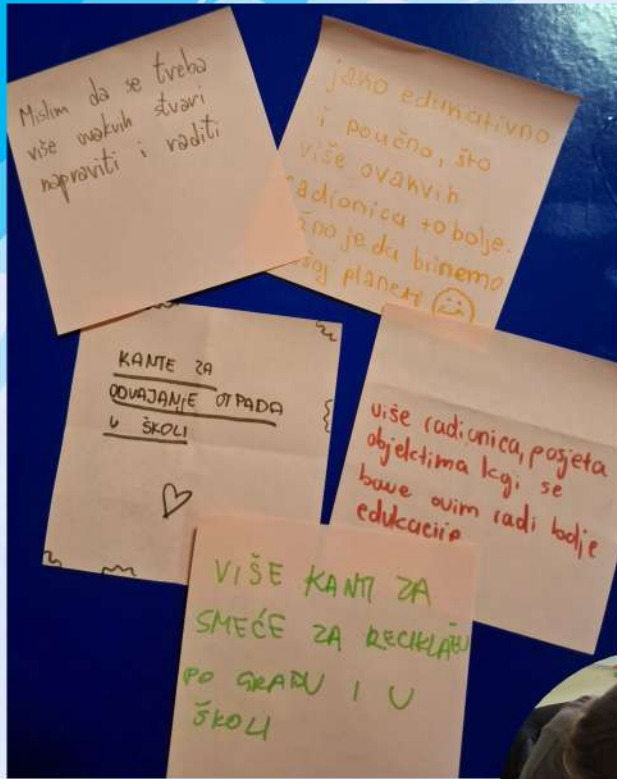 Mislim da se treba
više ovakvih stvari
napraviti i raditi
jako edukativno
i poučno, što
više ovakvih
radionica to bolje.
je da brinemo
planeti
KANTE ZA
ODVAJANJE OTPADA
U ŠKOLI
više radionica, posjeta
objektima koji se
bave ovim radi bolje
edukacije
VIŠE KANTI ZA
SMEĆE ZA RECIKLAŽU
PO GRADU I U
ŠKOLI